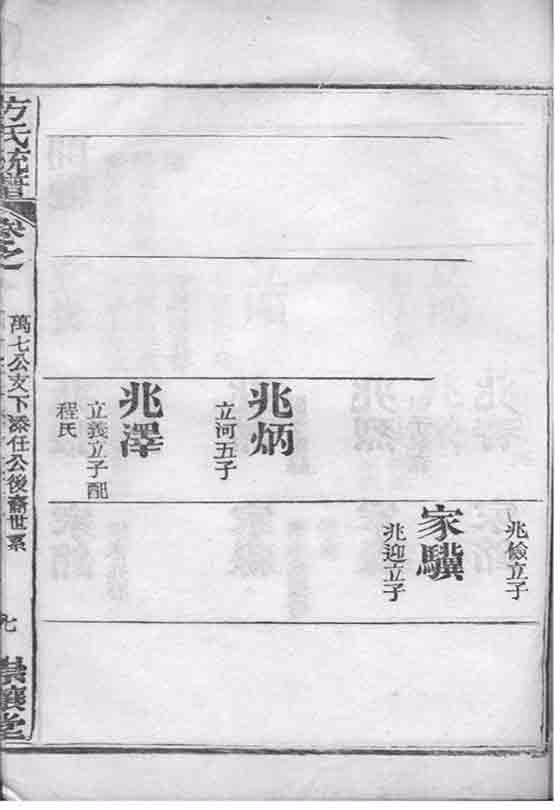 兆炳
立河五子
兆澤
立義立子配
程氏
兆儉立子
家驥
兆迎立子
方氏統譜
卷之
萬七公支下添任公後裔世系
七